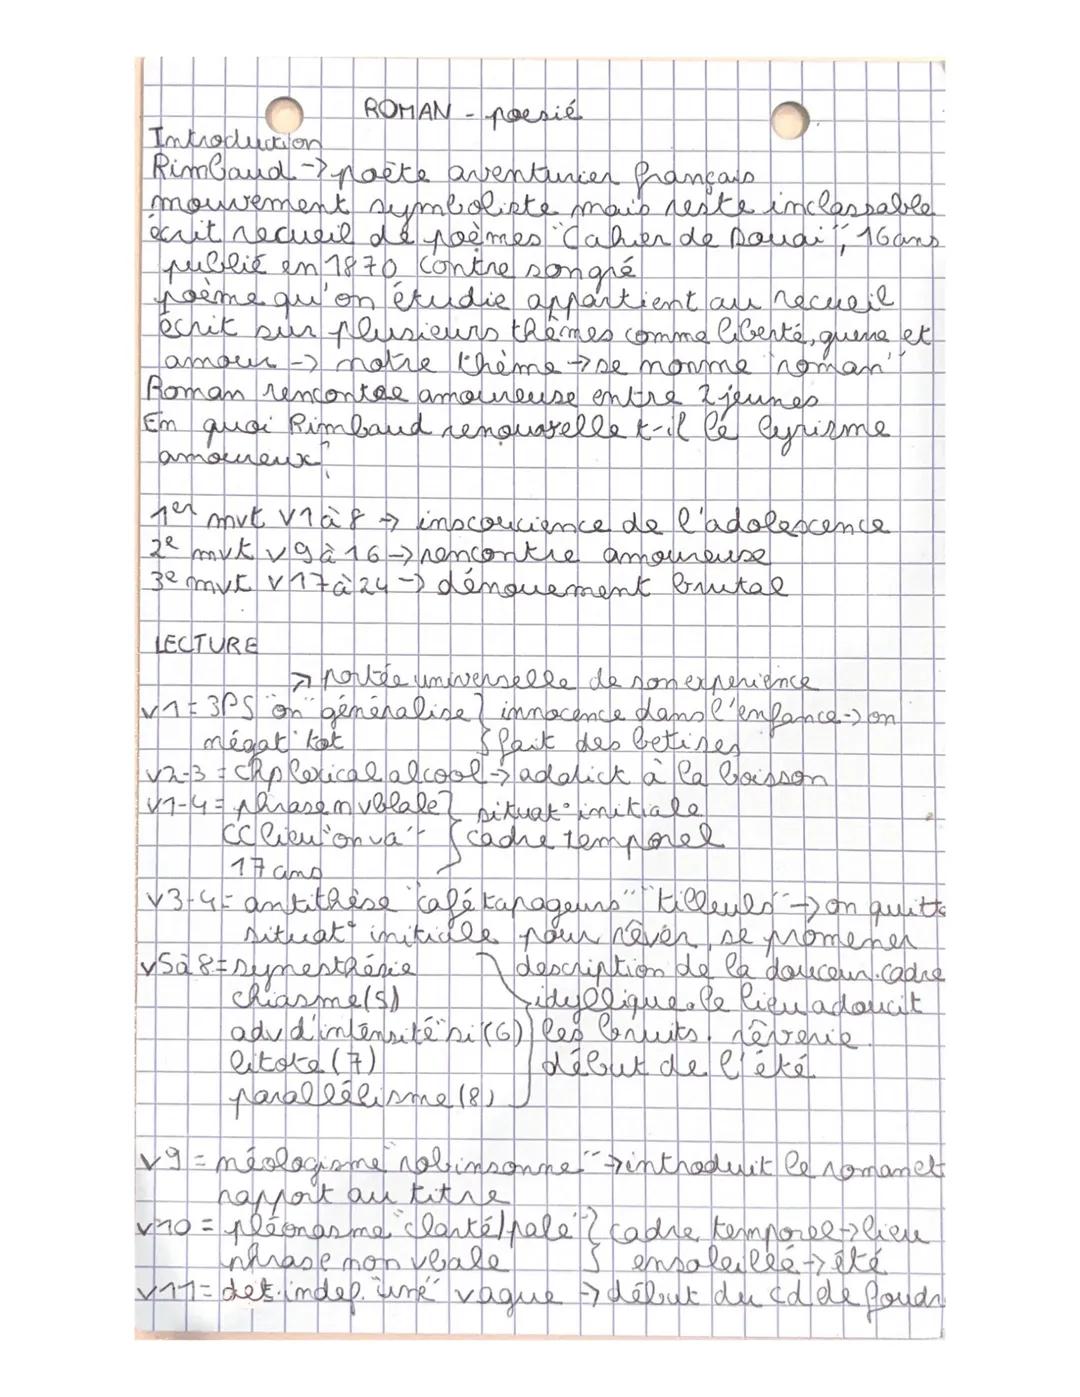 ROMAN - poesié
Introduction
Rimbaud -> poète aventurier français
mouvement symboliste mais reste inclassable
écrit recueil de poèmes "Cahier de Douai", 16 ans
publié en 1870 contre son gré
poème qu'on étudie appartient au recueil
écrit sur plusieurs thèmes comme liberté, guerre et
amour -> notre thème -> se nomme "roman"
Roman rencontre amoureuse entre 2 jeunes
En quoi Rimbaud renouvelle t-il le lyrisme
amoureux?
1er mvt v1 à 8 -> insouscience de l'adolescence
2e mvt v9 à 16 -> rencontre amoureuse
3e mvt v17 à 24 -> dénouement brutal
LECTURE
-> portée universelle de son experience
v1 = 3PS "on" généralise } innocence dans l'enfance -> on
négat° tot } fait des betises
v2-3 = chp lexical alcool -> addick à la boisson
v1-4 = phrase nvblale } situat° initiale
CC lieu "on va" } cadre temporel
17 ans
v3-4 = antithèse "café tapageurs" "tilleuls" -> on quitte
situat° initiale pour rêver, se promener
v5 à 8 = synesthésie description de la douceur. cadre
chiasme (5) idyllique. le lieu adoucit
adv d'intensité "si" (6) les bruits. rêverie.
litote (7) début de l'été
parallélisme (8)
v9 = néologisme "robinsonne" -> introduit le roman et
rapport au titre
v10 = pléonasme "clarté/pale" } cadre temporel -> lieu
phrase non vbale } ensoleillé -> été
v11 = det. indef. "une" vague -> début du cd de foudr